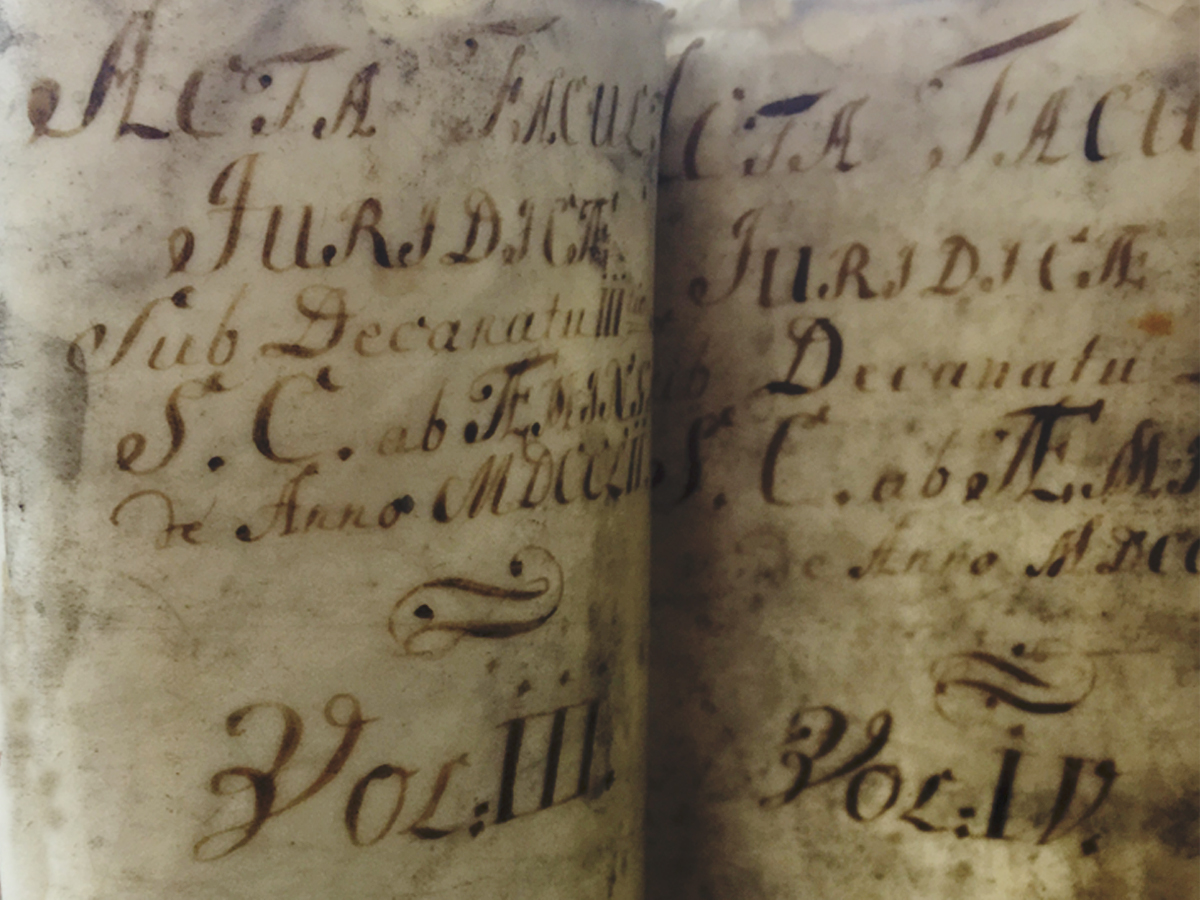 ACTA FACUL
JURIDICÆ
Sub Decanatu III
S. C. ab
de Anno MDCCLII
VOL: III.
ACTA FACU
JURIDICÆ
Decanatu
S. C. ab Æ.
de Anno MDCC
VOL: IV.